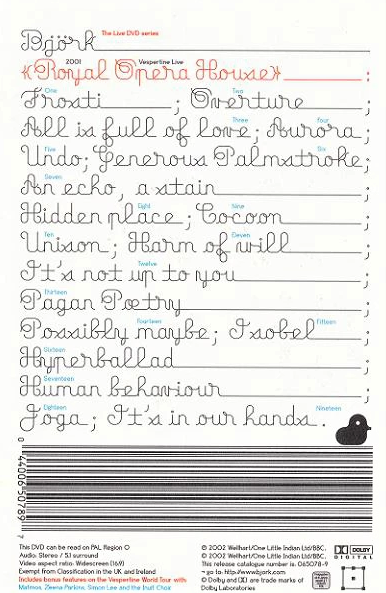 Björk The Live DVD series
2001 Vespertine Live
«Royal Opera House»
One Two
Frosti ; Overture ;
Three four
All is full of love; Aurora ;
Five Six
Undo; Generous Palmstroke;
Seven
An echo, a stain ;
Eight Nine
Hidden place ; Cocoon ;
Ten Eleven
Unison ; Harm of will ;
Twelve
It's not up to you ;
Thirteen
Pagan Poetry ;
fourteen fifteen
Possibly maybe; Isobel ;
Sixteen
Hyperballad ;
Seventeen
Human behaviour ;
Eighteen Nineteen
Joga ; It's in our hands .
0 44006 50789 7
This DVD can be read on PAL Region 0
Audio: Stereo / 5.1 surround
Video aspect ratio: Widescreen (16:9)
Exempt from Classification in the UK and Ireland
Includes bonus features on the Vespertine World Tour with
Matmos, Zeena Parkins, Simon Lee and the Inuit Choir
© 2002 Wellhart/One Little Indian Ltd/BBC.
© 2002 Wellhart/One Little Indian Ltd/BBC.
This release catalogue number is: 065078-9
¬ go to: http://www.bjork.com
© Dolby and DD are trade marks of
Dolby Laboratories
DOLBY
DIGITAL